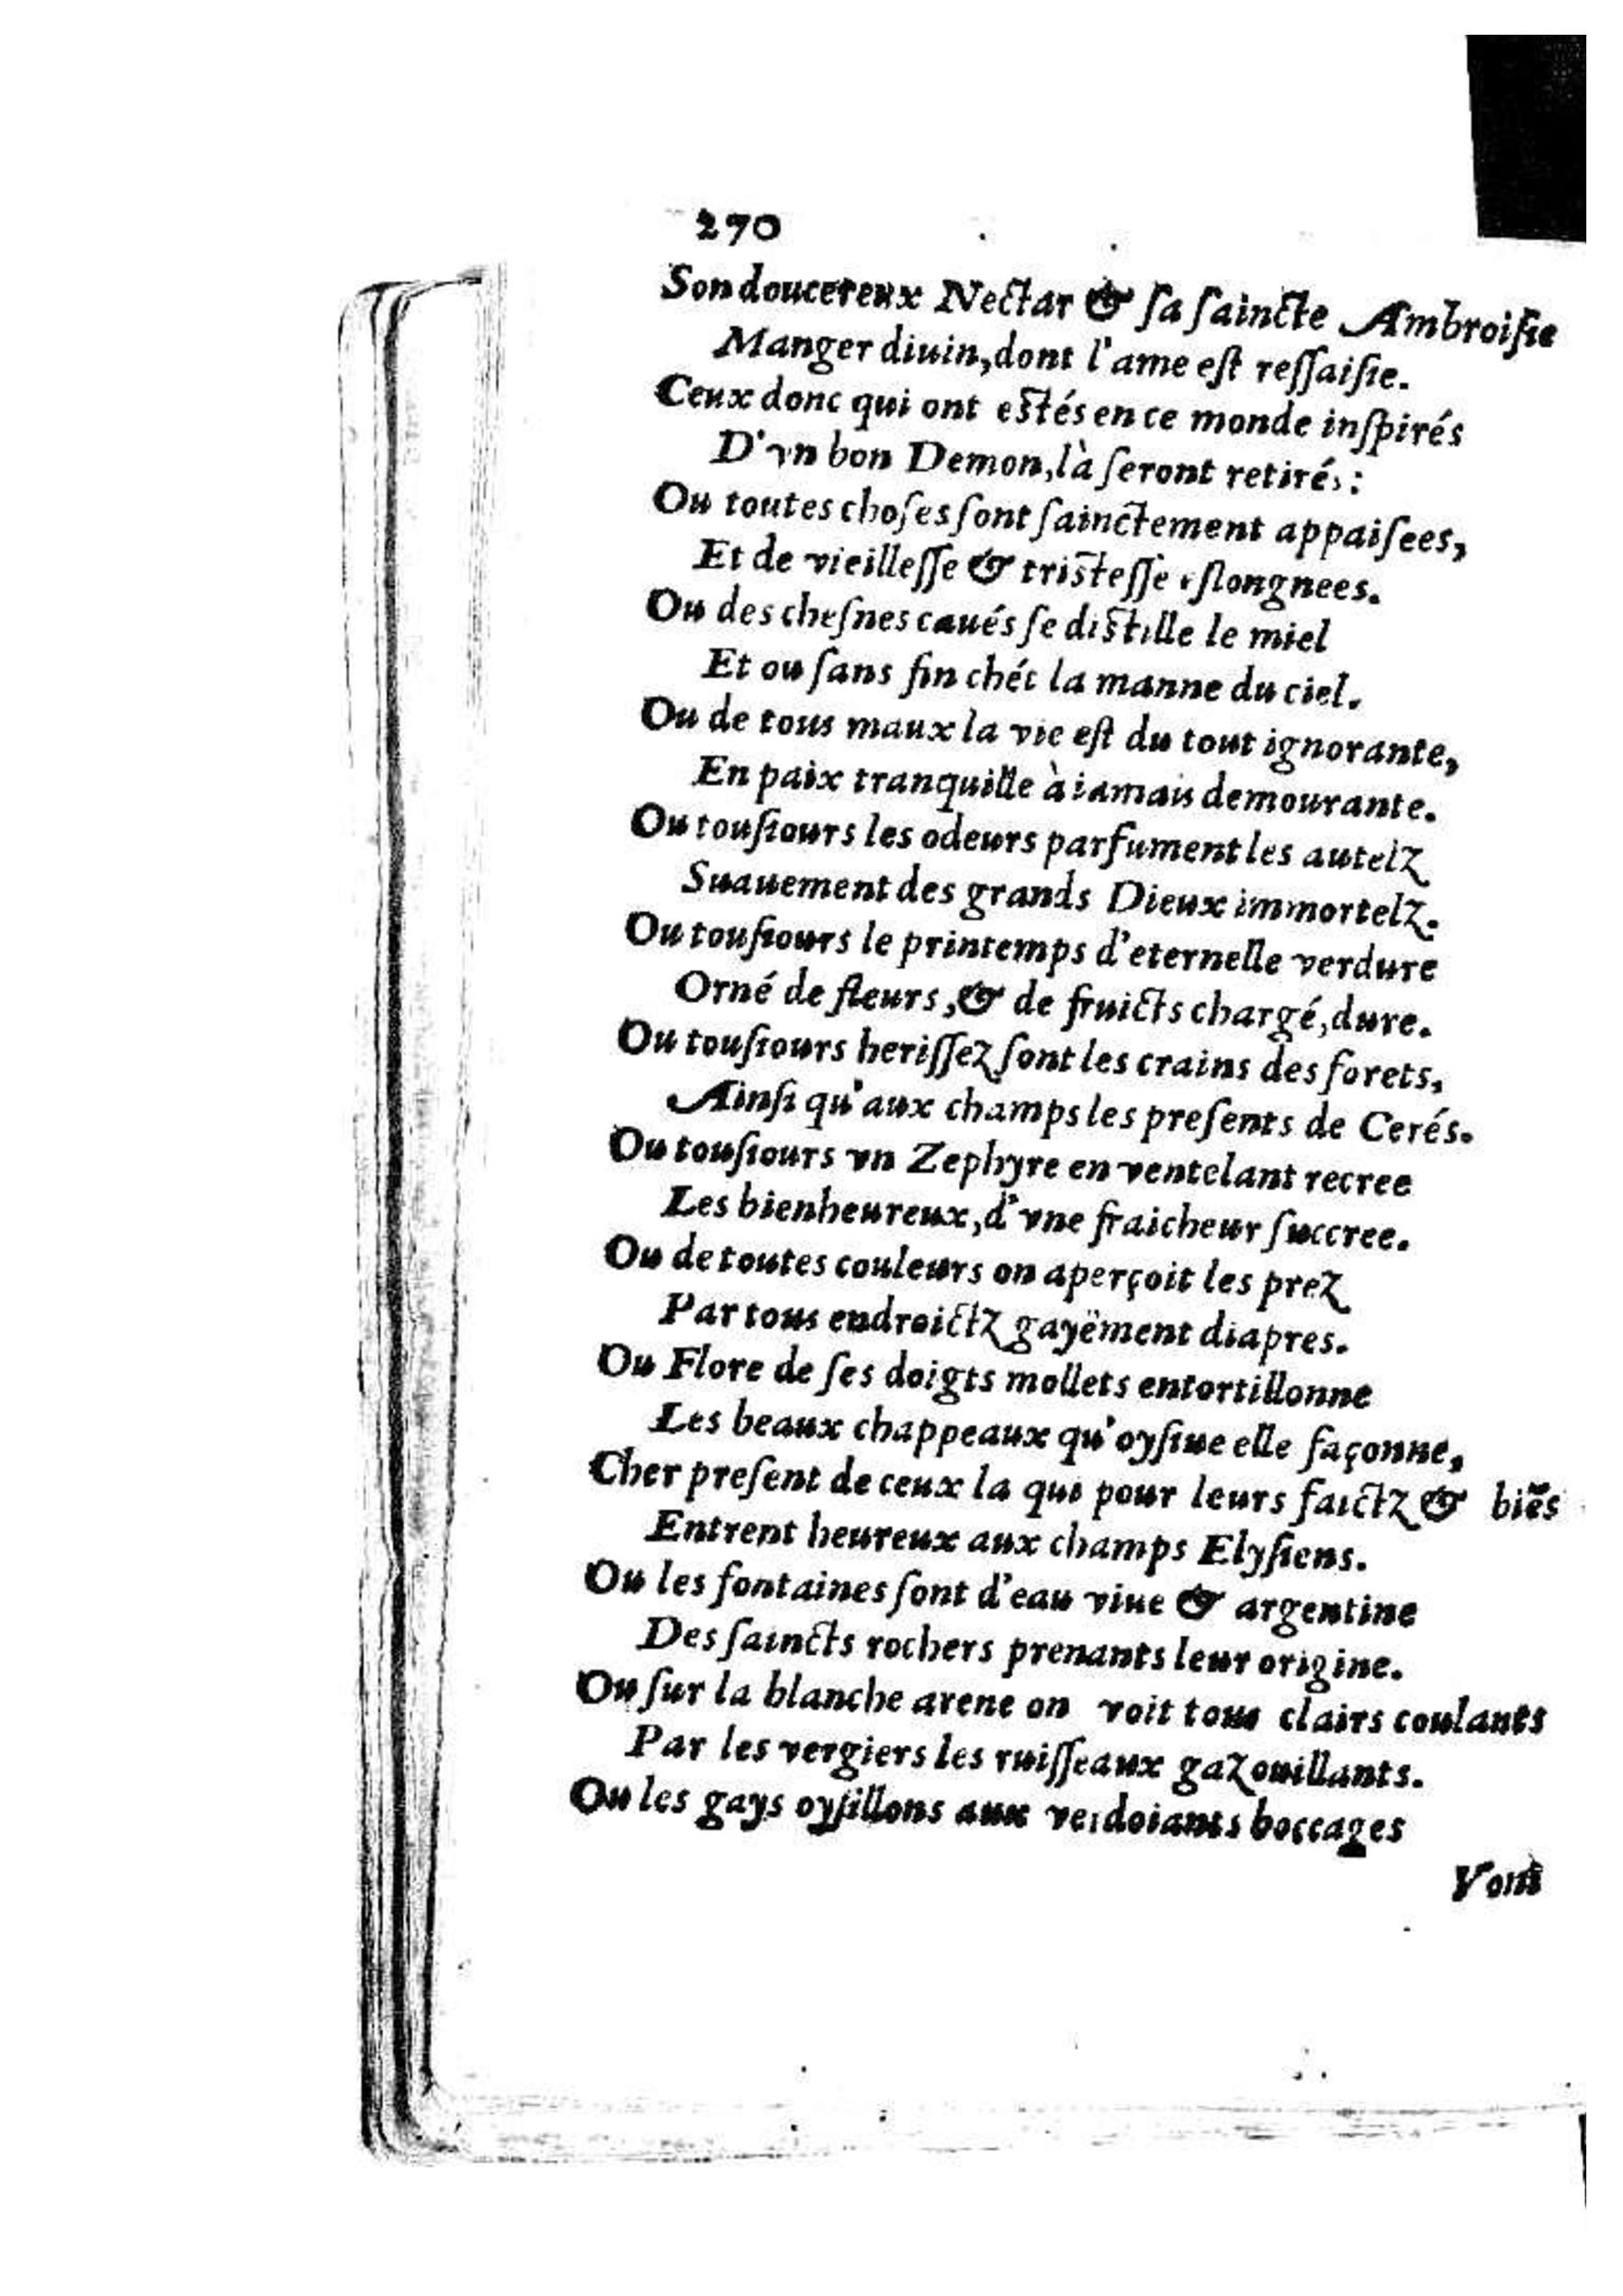 270
Son doucereux Nectar & ſa ſaincte Ambroiſie
Manger diuin, dont l'ame eſt reſſaiſie.
Ceux donc qui ont eſtés en ce monde inſpirés
D'vn bon Demon, là ſeront retirés:
Ou toutes choſes ſont ſainctement appaiſees,
Et de vieilleſſe & triſteſſe eſlongnees.
Ou des cheſnes caués ſe diſtille le miel
Et ou ſans fin chét la manne du ciel.
Ou de tous maux la vie eſt du tout ignorante,
En paix tranquille à iamais demourante.
Ou touſiours les odeurs parfument les autelz
Suauement des grands Dieux immortelz.
Ou touſiours le printemps d'eternelle verdure
Orné de fleurs, & de fruicts chargé, dure.
Ou touſiours heriſſez ſont les crains des forets,
Ainſi qu'aux champs les preſents de Cerés.
Ou touſiours vn Zephyre en ventelant recree
Les bienheureux, d'vne fraicheur ſuccree.
Ou de toutes couleurs on aperçoit les prez
Par tous endroictz gayëment diapres.
Ou Flore de ſes doigts mollets entortillonne
Les beaux chappeaux qu'oyſiue elle façonne,
Cher preſent de ceux la qui pour leurs faictz & biẽs
Entrent heureux aux champs Elyſiens.
Ou les fontaines ſont d'eau viue & argentine
Des ſaincts rochers prenants leur origine.
Ou ſur la blanche arene on voit tous clairs coulants
Par les vergiers les ruiſſeaux gazouillants.
Ou les gays oyſillons aux verdoiants boccages
Vont